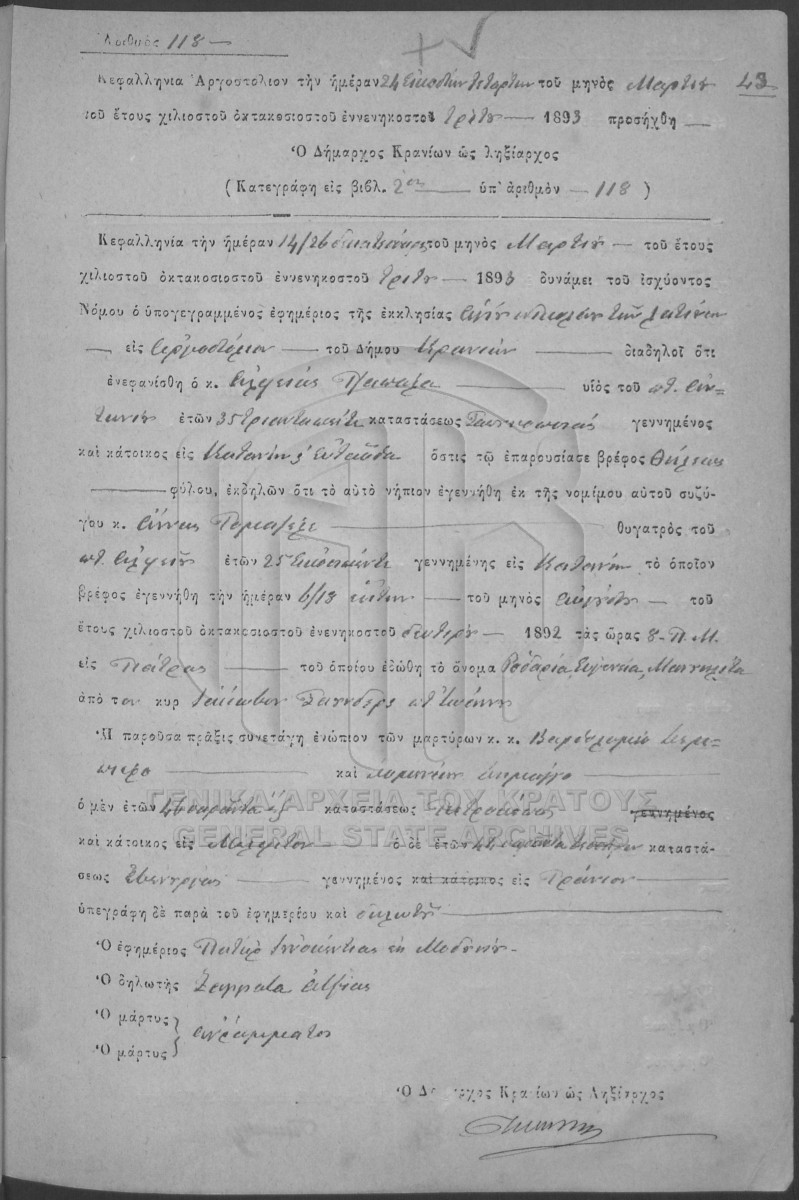 Ἀριθμὸς 118 —
43
Κεφαλληνία Ἀργοστόλιον τὴν ἡμέραν 24 εἰκοστὴν τετάρτην τοῦ μηνὸς Μαρτίου
τοῦ ἔτους χιλιοστοῦ ὀκτακοσιοστοῦ ἐννενηκοστοῦ τρίτου — 1893 προσήχθη —
Ὁ Δήμαρχος Κρανίων ὡς ληξίαρχος
(Κατεγράφη εἰς βιβλ. 2ον — ὑπ' ἀριθμὸν — 118)
Κεφαλληνία τὴν ἡμέραν 14/26 τοῦ μηνὸς Μαρτίου — τοῦ ἔτους
χιλιοστοῦ ὀκτακοσιοστοῦ ἐννενηκοστοῦ τρίτου — 1893 δυνάμει τοῦ ἰσχύοντος
Νόμου ὁ ὑπογεγραμμένος ἐφημέριος τῆς ἐκκλησίας Ἁγίου Νικολάου τῶν Λατίνων
— εἰς Ἀργοστόλιον — τοῦ Δήμου Κρανίων — διαδηλοῖ ὅτι
ἐνεφανίσθη ὁ κ. — υἱὸς τοῦ ποτ. Ἀν-
τωνίου ἐτῶν 35 τριονταπέντε καταστάσεως γεννημένος
καὶ κάτοικος εἰς Κατάνην ἐνταῦθα ὅστις τῷ ἐπαρουσίασε βρέφος θήλεως
— φύλου, ἐκδηλῶν ὅτι τὸ αὐτὸ νήπιον ἐγεννήθη ἐκ τῆς νομίμου αὐτοῦ συζύ-
γου κ. Ἄννας — θυγατρὸς τοῦ
ποτ. ἐτῶν 25 εἰκοσιπέντε γεννημένης εἰς Κατάνην τὸ ὁποῖον
βρέφος ἐγεννήθη τὴν ἡμέραν 6/18 ἕκτην — τοῦ μηνὸς Αὐγούστου — τοῦ
ἔτους χιλιοστοῦ ὀκτακοσιοστοῦ ἐνενηκοστοῦ δευτέρου — 1892 τὰς ὥρας 8 - Π. Μ.
εἰς Πάτρας — τοῦ ὁποίου ἐδώθη τὸ ὄνομα Ροζαρία, Εὐγενία,
ἀπὸ τον κυρ Ἰάκωβον ποτ Ἰωάννου
Ἡ παροῦσα πρᾶξις συνετάγη ἐνώπιον τῶν μαρτύρων κ. κ. Βαρθολομαῖο
— καὶ —
ὁ μὲν ἐτῶν 46 σαράντα ἓξ καταστάσεως γεννημένος
καὶ κάτοικος εἰς — ὁ δὲ ἐτῶν καταστά-
σεως — γεννημένος καὶ κάτοικος εἰς Τράνιον —
ὑπεγράφη δὲ παρὰ τοῦ ἐφημερίου καὶ δηλωτοῦ —
Ὁ ἐφημέριος Πατὴρ Ἰνοκέντιος ἐκ Μοδένης -
Ὁ δηλωτὴς
Ὁ μάρτυς
Ὁ μάρτυς
ἀγράμματοι
Ὁ Δήμαρχος Κρανίων ὡς Ληξίαρχος
ΓΕΝΙΚΑ ΑΡΧΕΙΑ ΤΟΥ ΚΡΑΤΟΥΣ
GENERAL STATE ARCHIVES